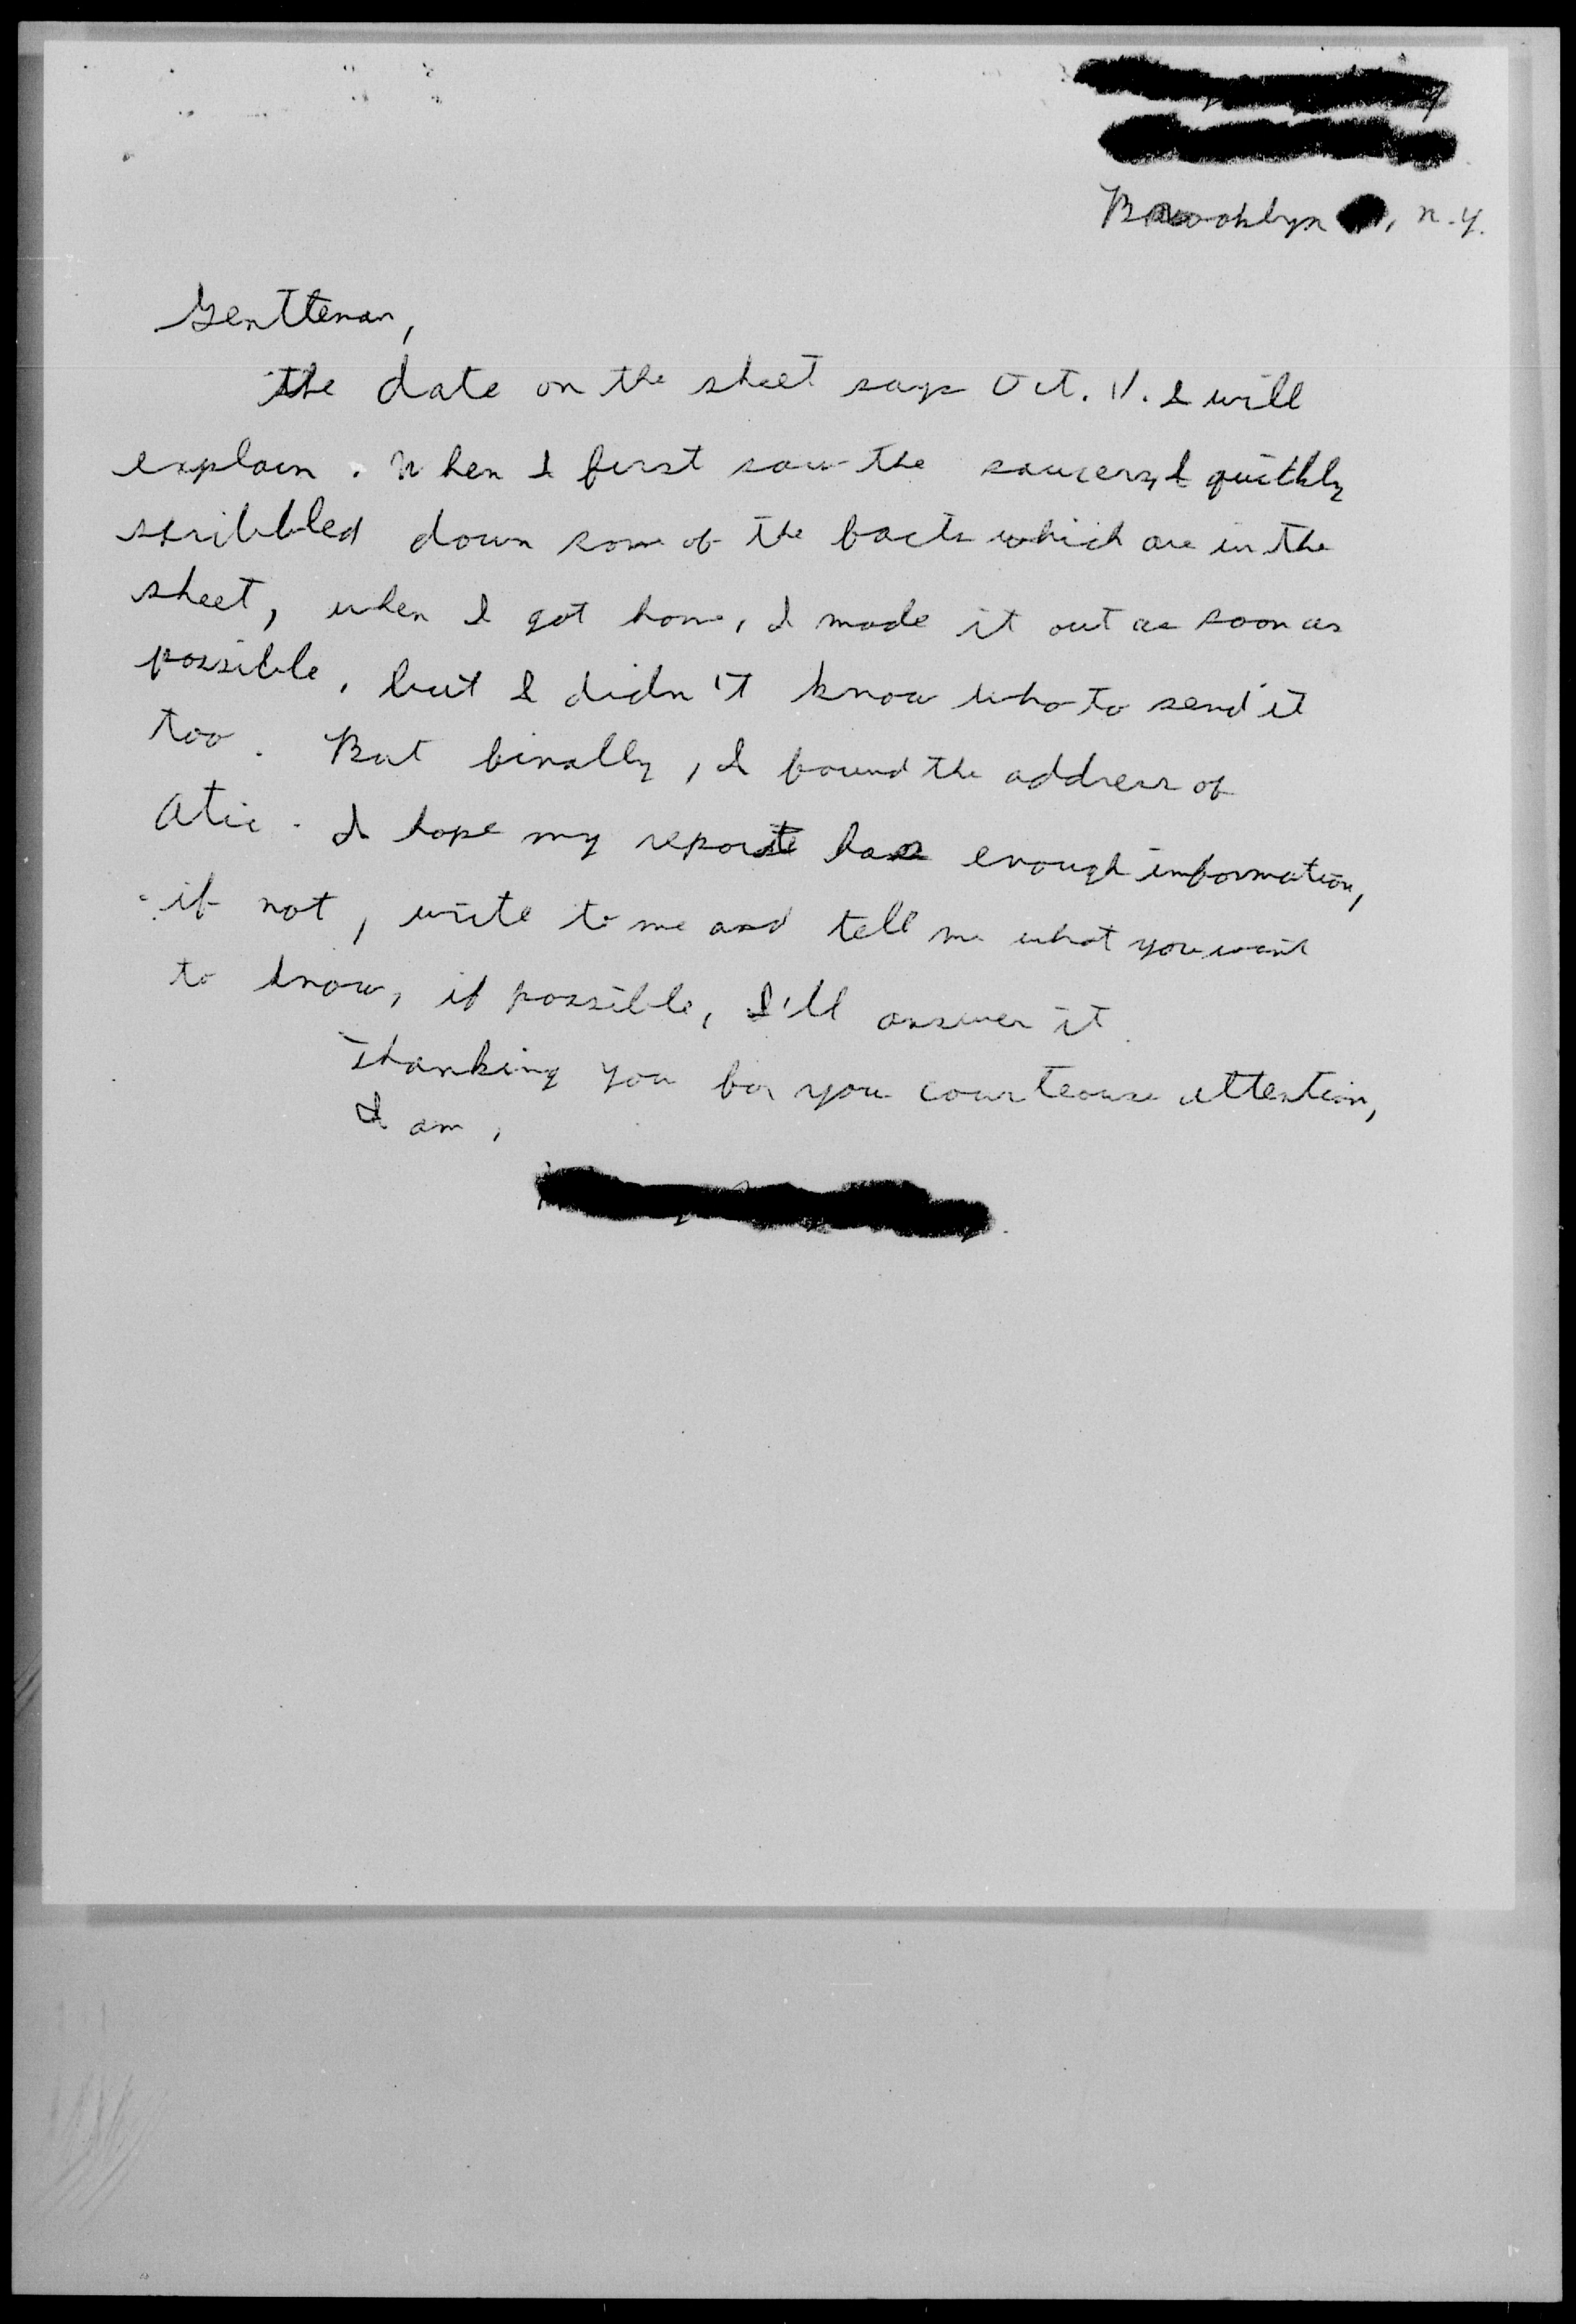 Brooklyn , N.Y.
Gentteman,
The date on the sheet says Oct. 11. I will
explain. When I first saw the saucers, I quickly
scribbled down some of the facts which are in the
sheet, when I got home, I made it out as soon as
possible, but I didn't know who to send it
too. But finally, I found the address of
Atic. I hope my reporte has enough information,
if not, write to me and tell me what you want
to know, if possible, I'll answer it.
Thanking you for you courteouse attention,
I am,